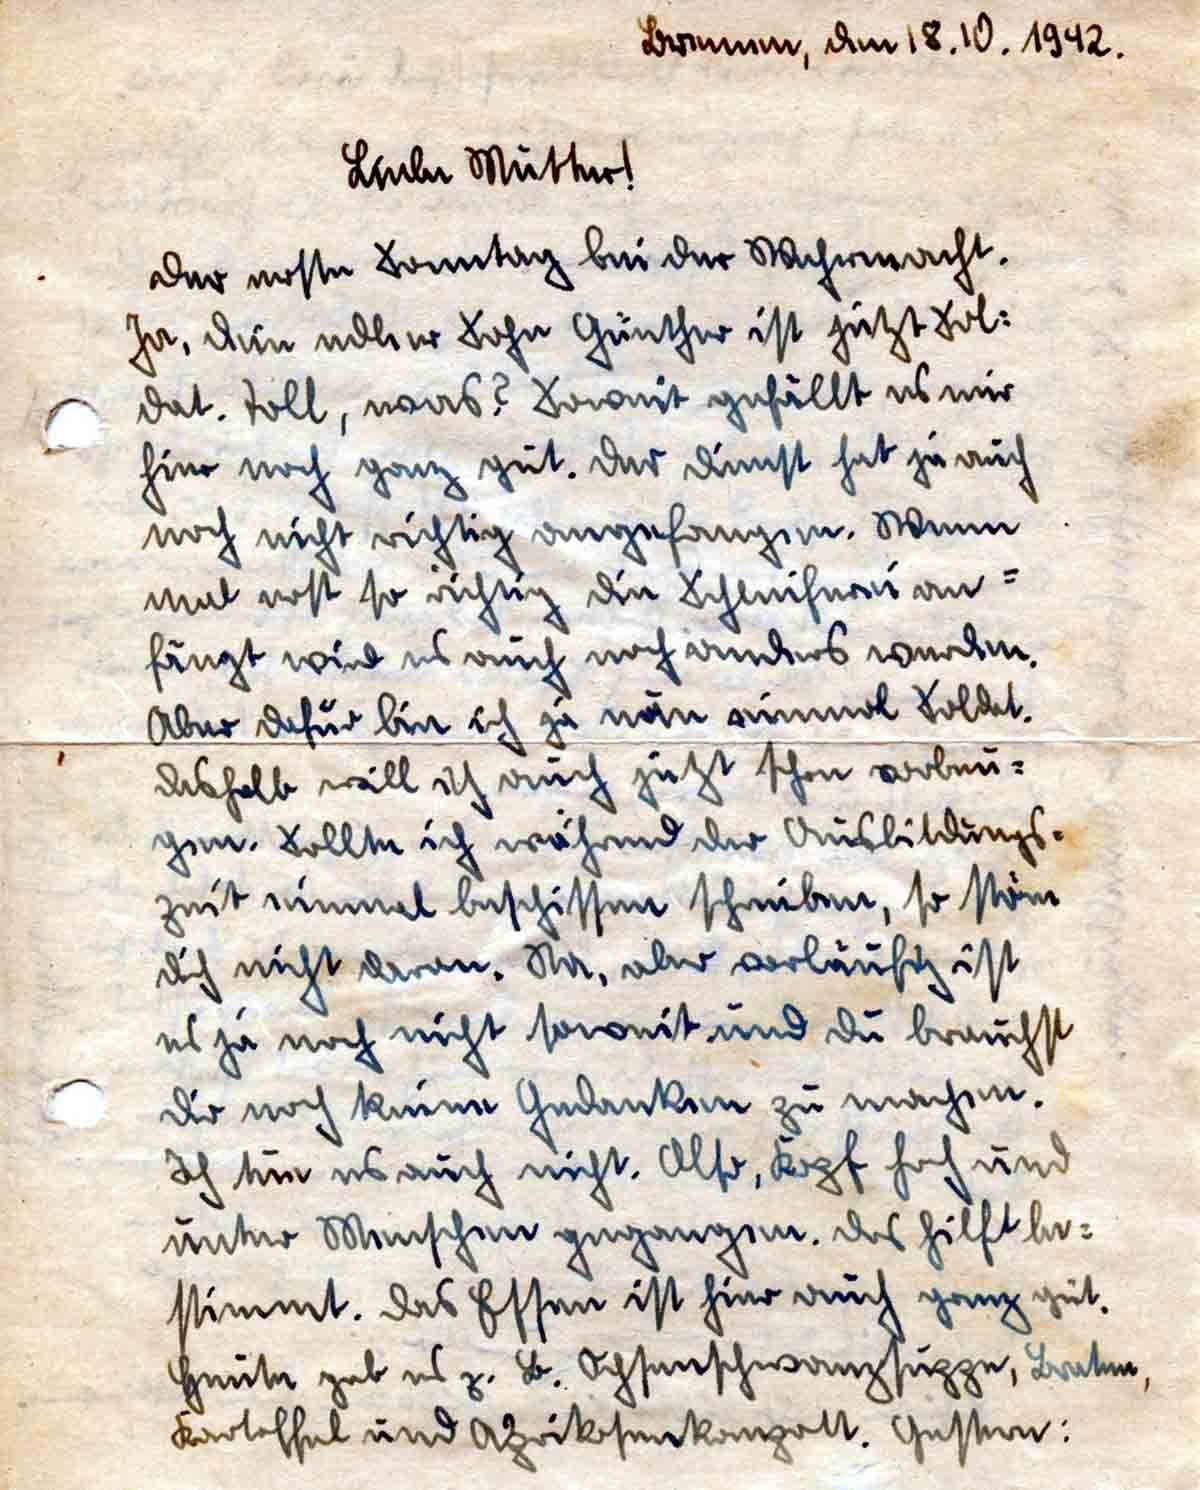 Bremen, den 18.10.1942.
Liebe Mutter!
Der erste Sonntag bei der Wehrmacht.
Ja, dein edler Sohn Günther ist jetzt Sol=
dat. Toll, was? Soweit gefällt es mir
hier noch ganz gut. Der Dienst hat ja auch
noch nicht richtig angefangen. Wenn
mal erst so richtig die Schleiferei an=
fängt wird es auch noch anders werden.
Aber dafür bin ich ja nun einmal Soldat.
Deshalb will ich auch jetzt schon vorbeu=
gen. Sollte ich während der Ausbildungs=
zeit einmal beschissen schreiben, so störe
dich nicht daran. Na, aber vorläufig ist
es ja noch nicht soweit und du brauchst
dir noch keine Gedanken zu machen.
Ich tue es auch nicht. Also, Kopf hoch und
unter Menschen gegangen. Das hilft be=
stimmt. Das Essen ist hier auch ganz gut.
Heute gab es z. B. Ochsenschwanzsuppe, Braten,
Kartoffel und Aprikosenkompott. Gestern: